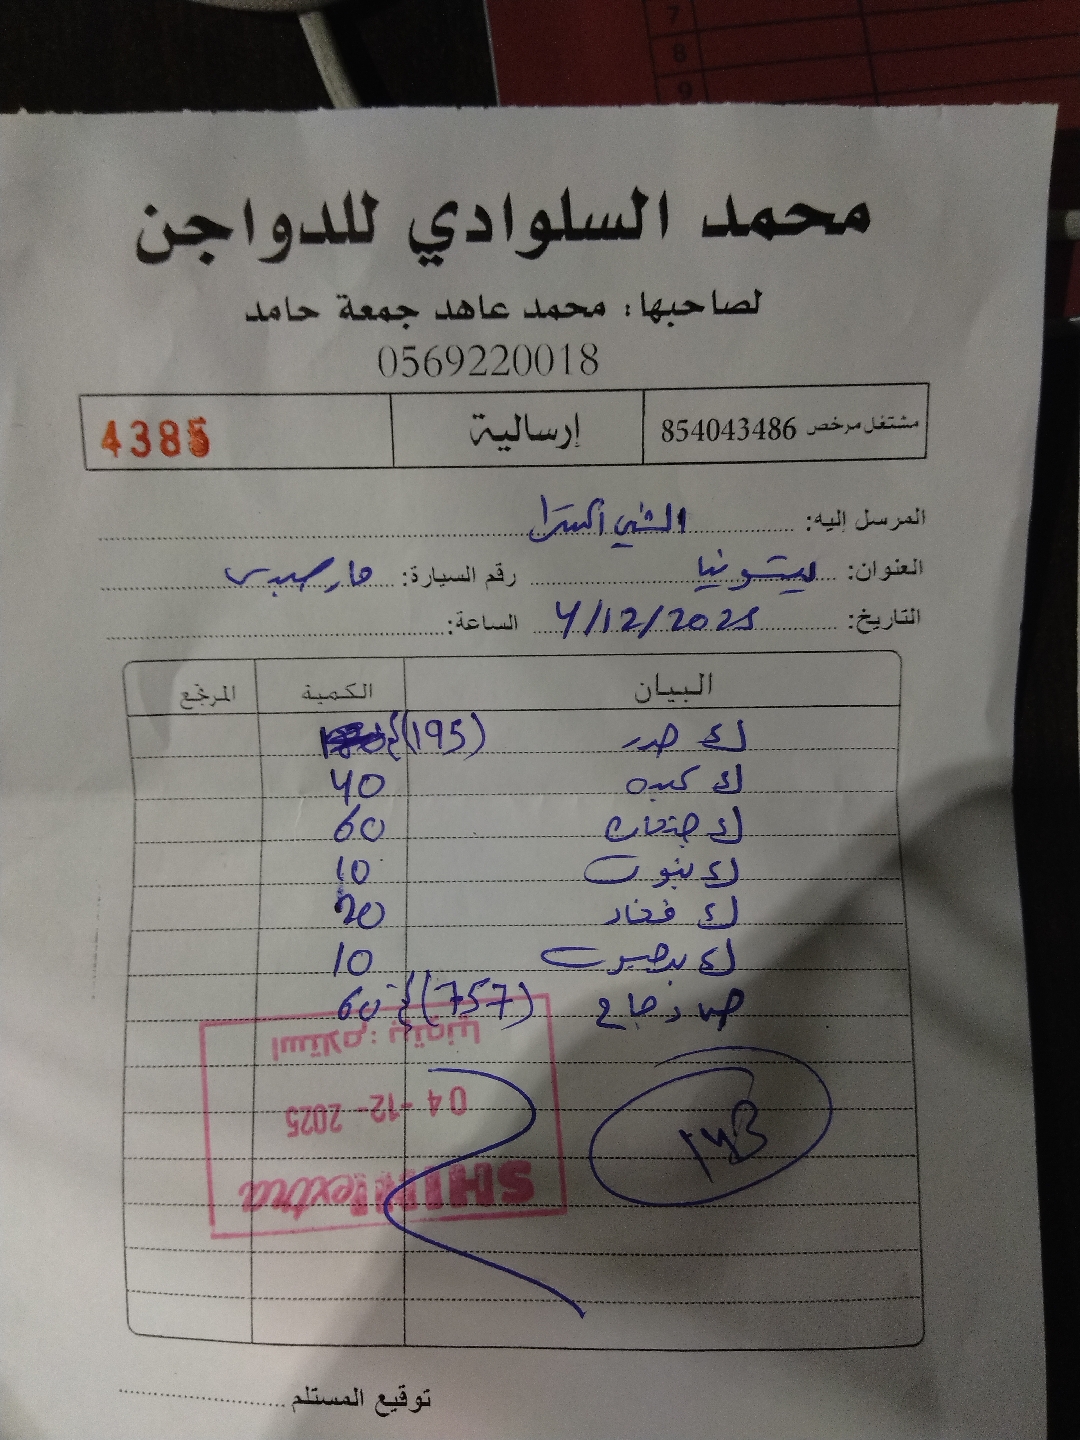 7
8
9
محمد السلوادي للدواجن
لصاحبها: محمد عاهد جمعة حامد
0569220018
مشتغل مرخص 854043486 إرسالية 4385
المرسل إليه: الشني اكسترا
العنوان: بيتونيا رقم السيارة:
التاريخ: 4/12/2025 الساعة:
البيان الكمية المرتجع
ك صدر (195)
ك كبده 40
ك جنحات 60
ك 10
ك فخاد 20
ك 10
دجاج (757) 60
استلام: بيتونيا
04-12-2025
SHINI extra
توقيع المستلم